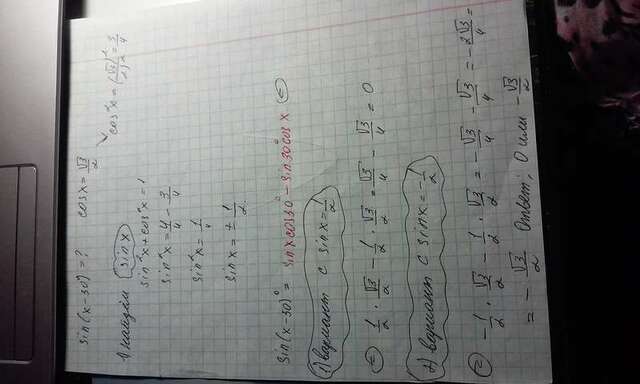 sin(x-30°) = ? cos x = √3/2 → cos²x = (√3/2)² = 3/4
1) найдём sin x
sin²x + cos²x = 1
sin²x = 4/4 - 3/4
sin²x = 1/4
sin x = ± 1/2
sin(x-30)° = sin x cos 30° - sin 30° cos x ⊜
1) вариант с sin x = 1/2
⊜ 1/2 · √3/2 - 1/2 · √3/2 = √3/4 - √3/4 = 0
2) вариант с sin x = -1/2
⊜ -1/2 · √3/2 - 1/2 · √3/2 = -√3/4 - √3/4 = -2√3/4 =
= -√3/2 Ответ: 0 или -√3/2